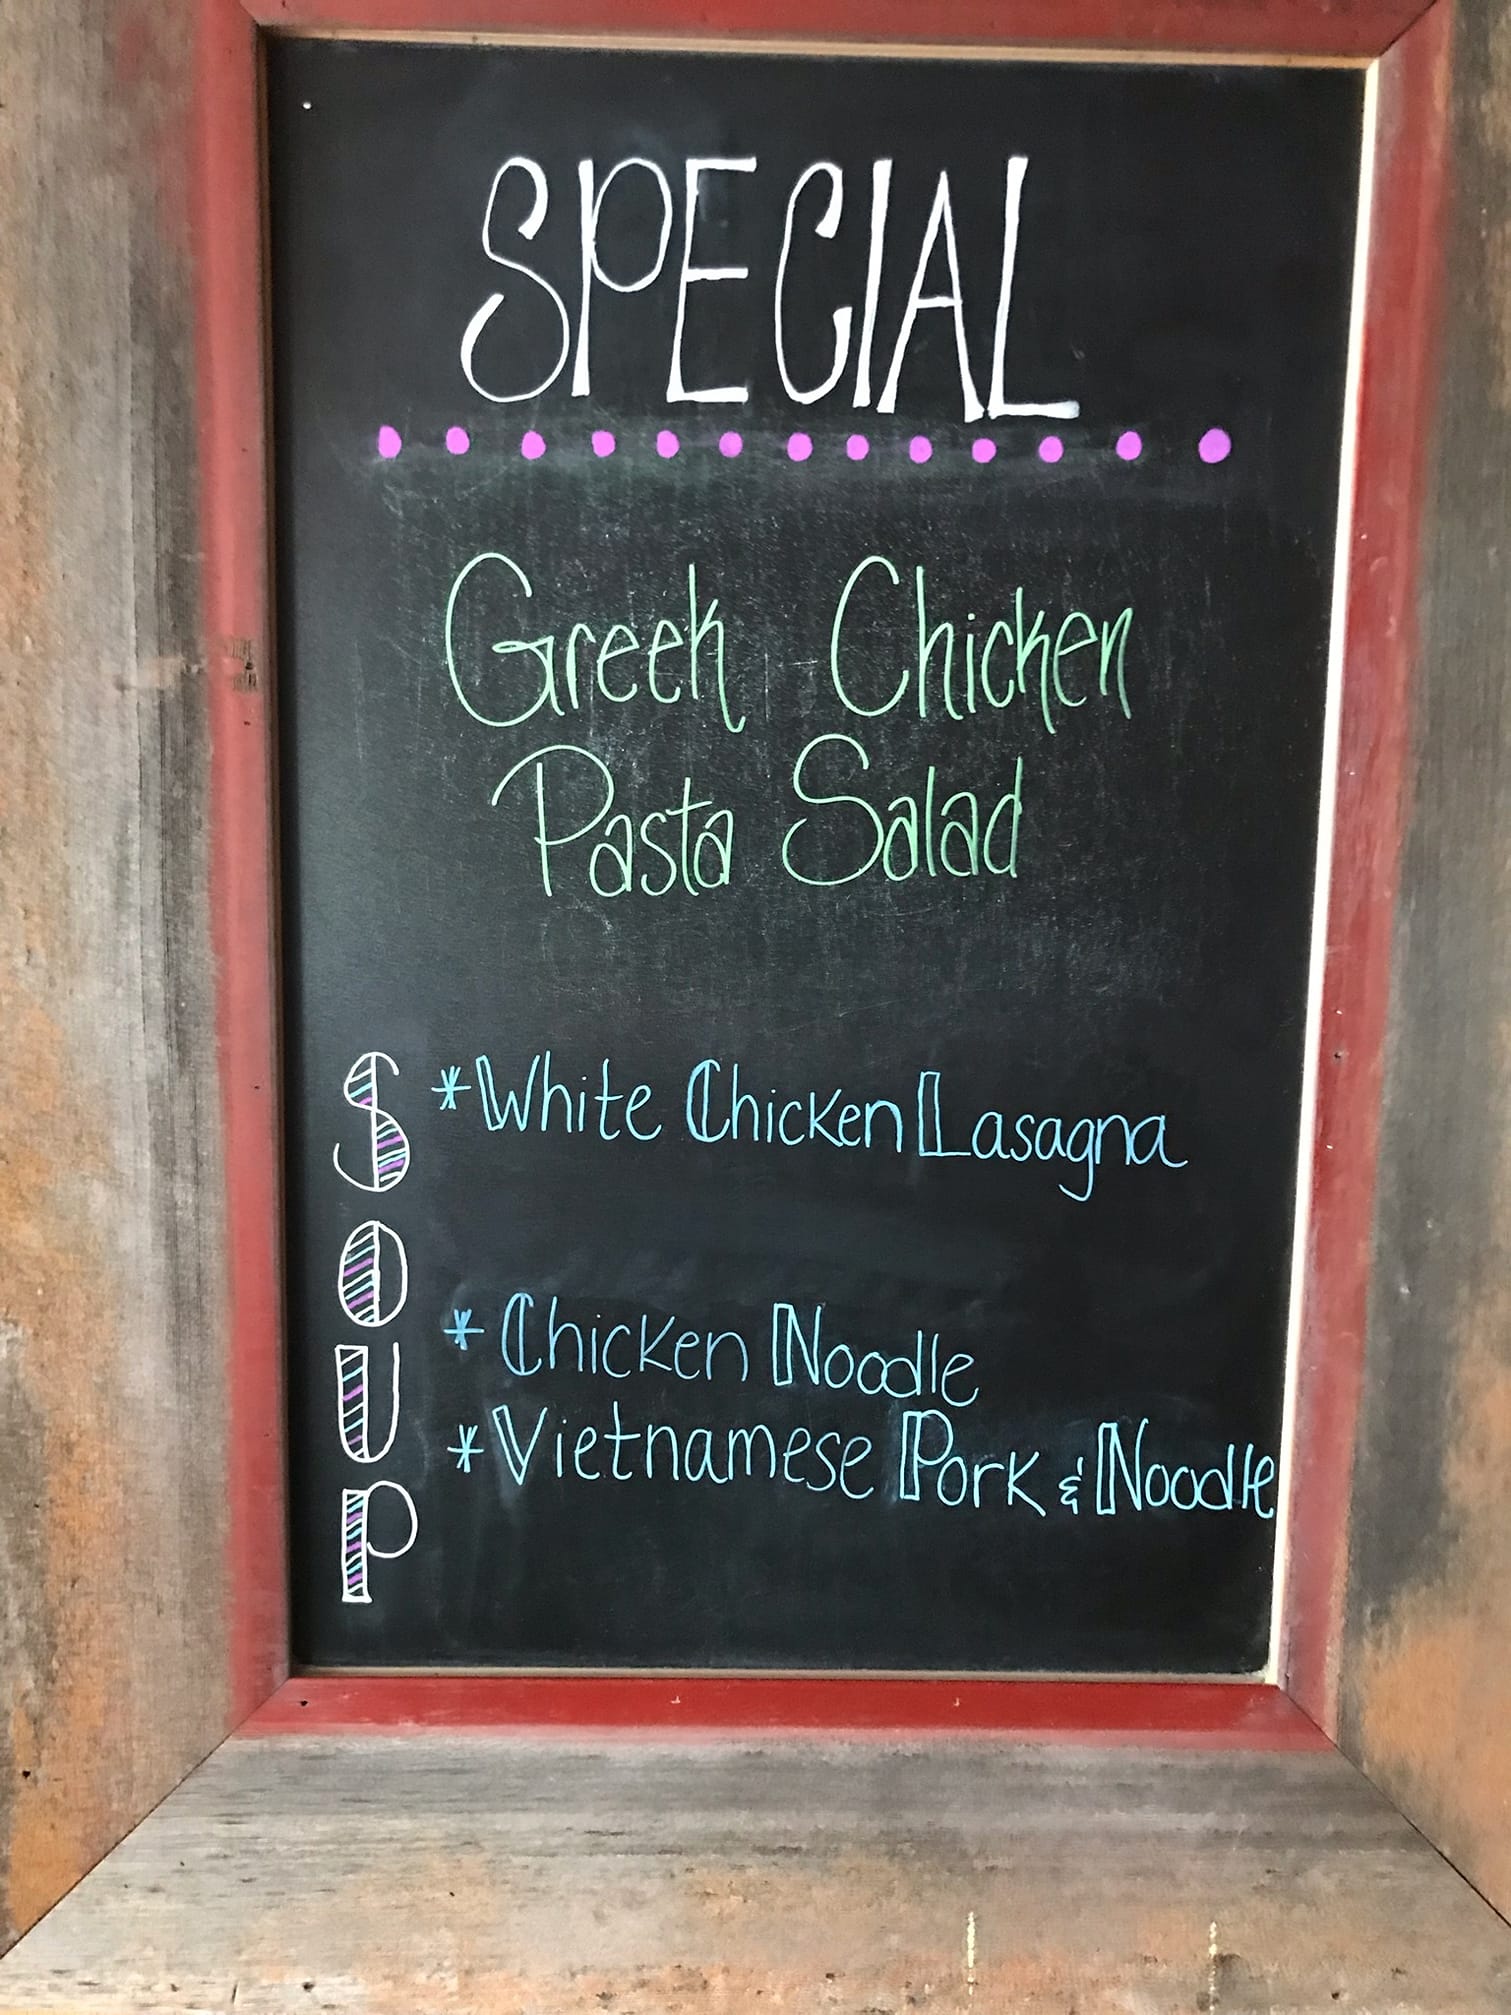 SPECIAL
Greek Chicken
Pasta Salad
SOUP
*White Chicken Lasagna
*Chicken Noodle
*Vietnamese Pork & Noodle